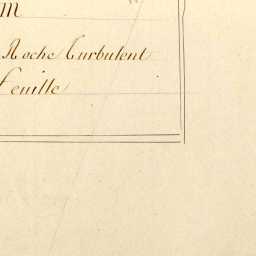 m
Roche Turbulent
feuille